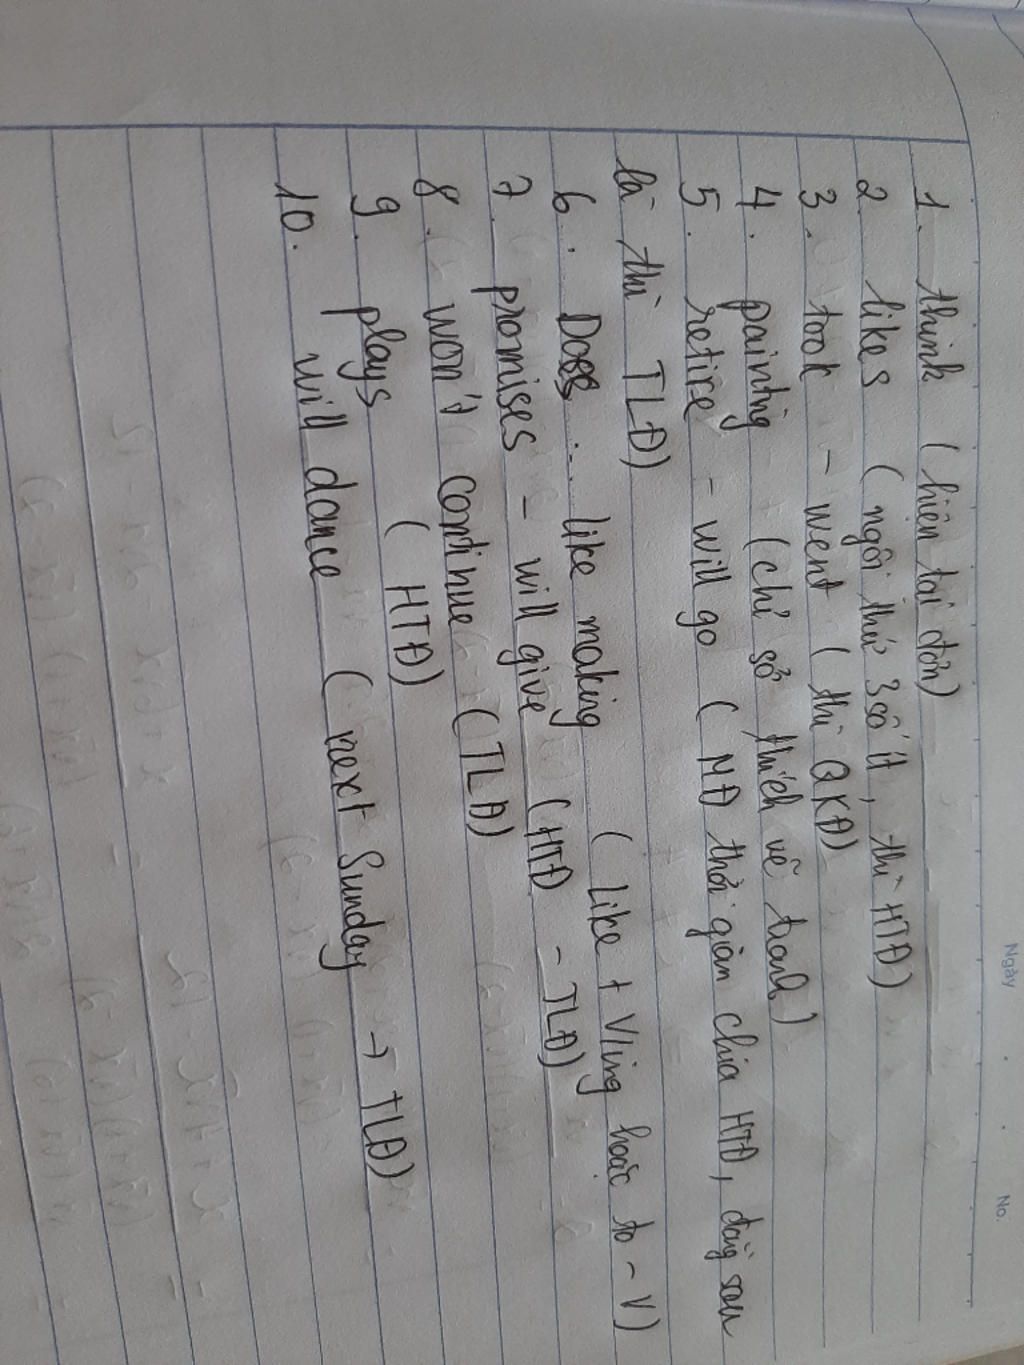 Ngày
No.
1. think (hiện tại đơn)
2. likes (ngôi thứ 3 số ít, thì HTĐ)
3. took - went (thì QKĐ)
4. painting (chỉ sở thích vẽ tranh)
5. retire - will go (MĐ thời gian chia HTĐ, đằng sau
là thì TLĐ)
6. Does ... like making (like + V/ing hoặc to - V)
7. promises - will give (HTĐ - TLĐ)
8. won't continue (TLĐ)
9. plays (HTĐ)
10. will dance (next Sunday → TLĐ)